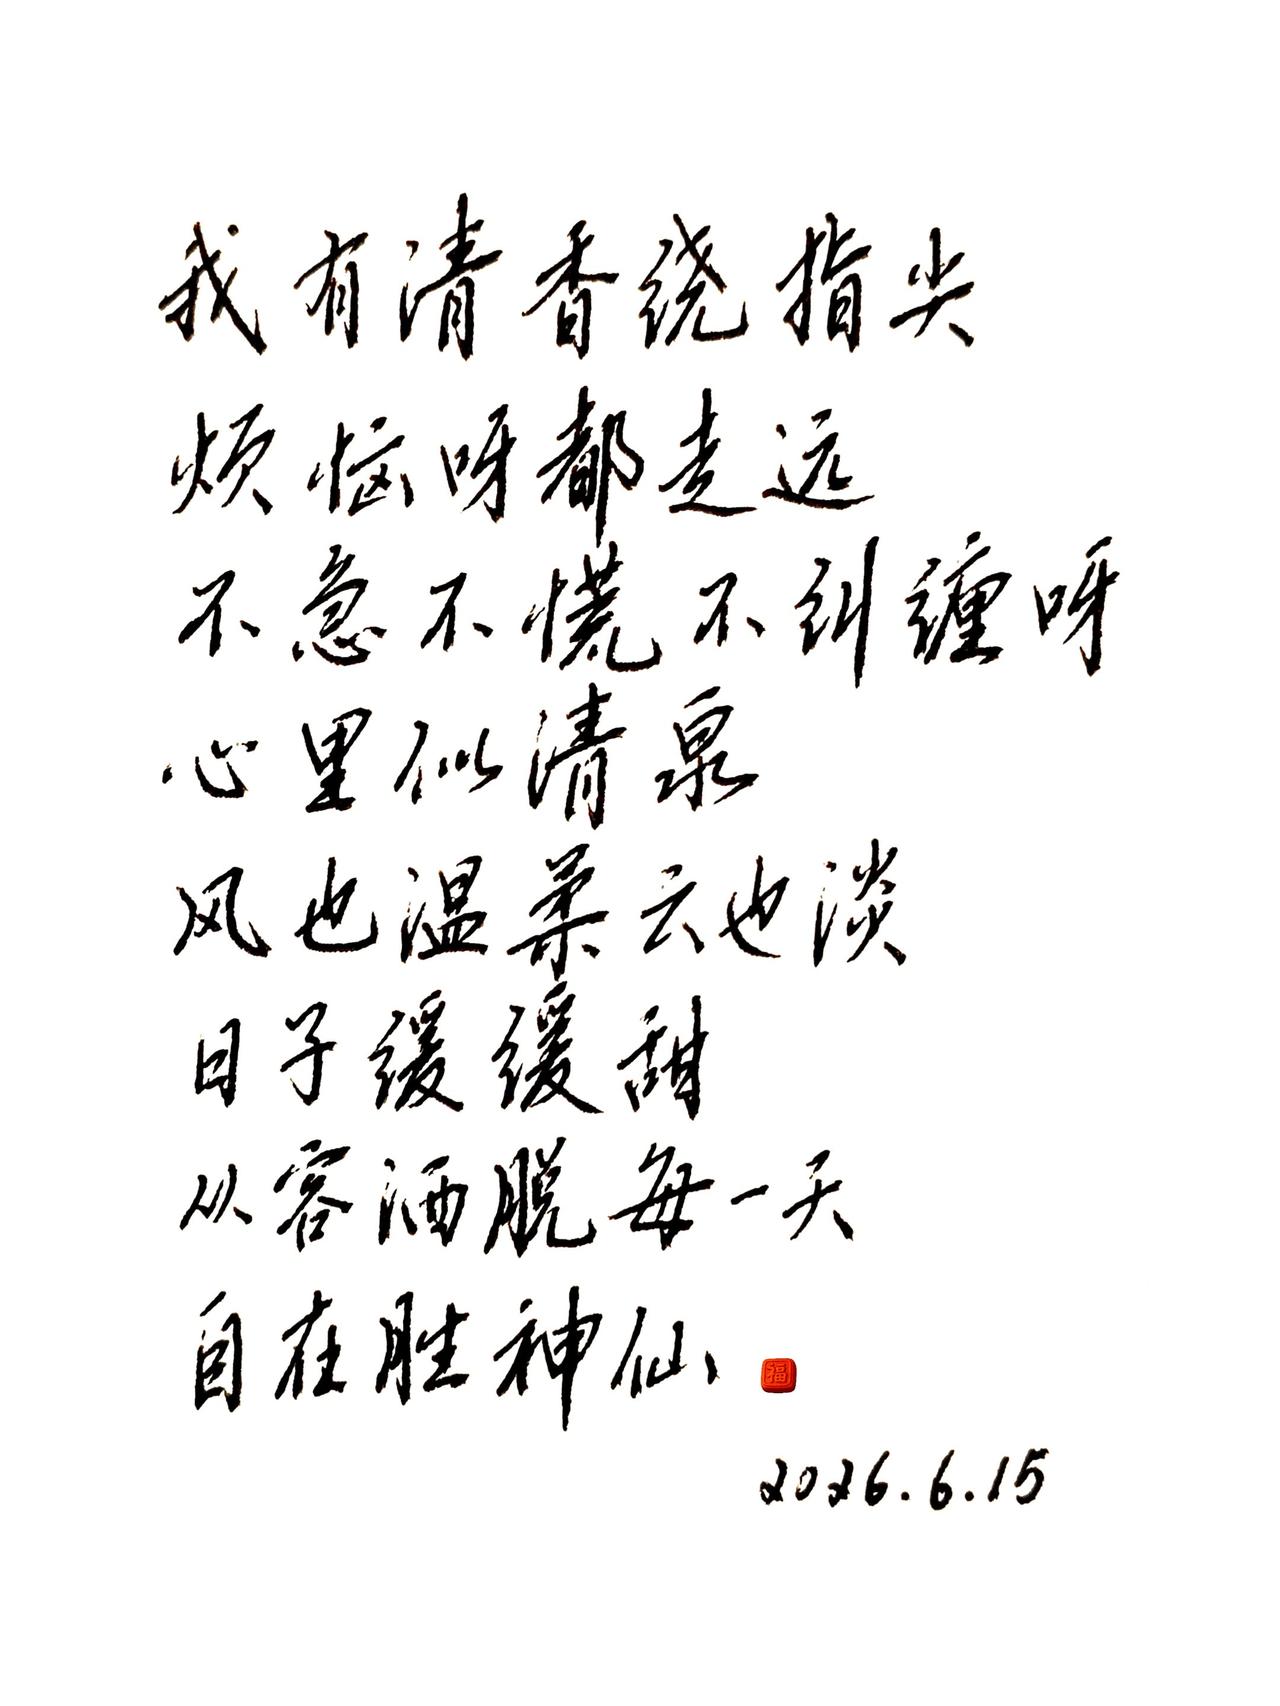 我有清香绕指尖
烦恼呀都走远
不急不慌不纠缠呀
心里似清泉
风也温柔云也淡
日子缓缓甜
从容洒脱每一天
自在胜神仙
福
2026.6.15